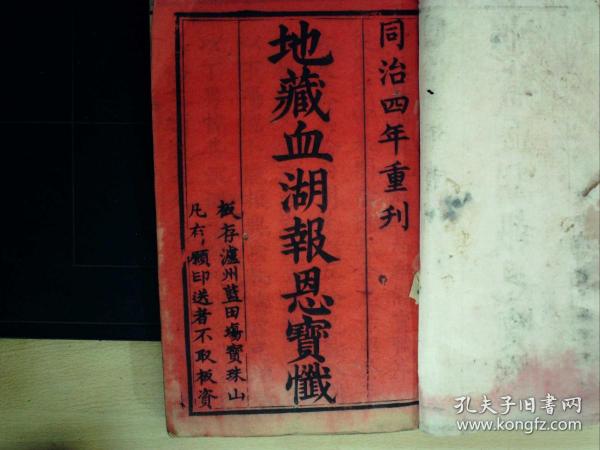 同治四年重刊
地藏血湖報恩寶懺
板存瀘州藍田塲寶珠山
凡有願印送者不取板資
孔夫子旧书网
www.kongfz.com